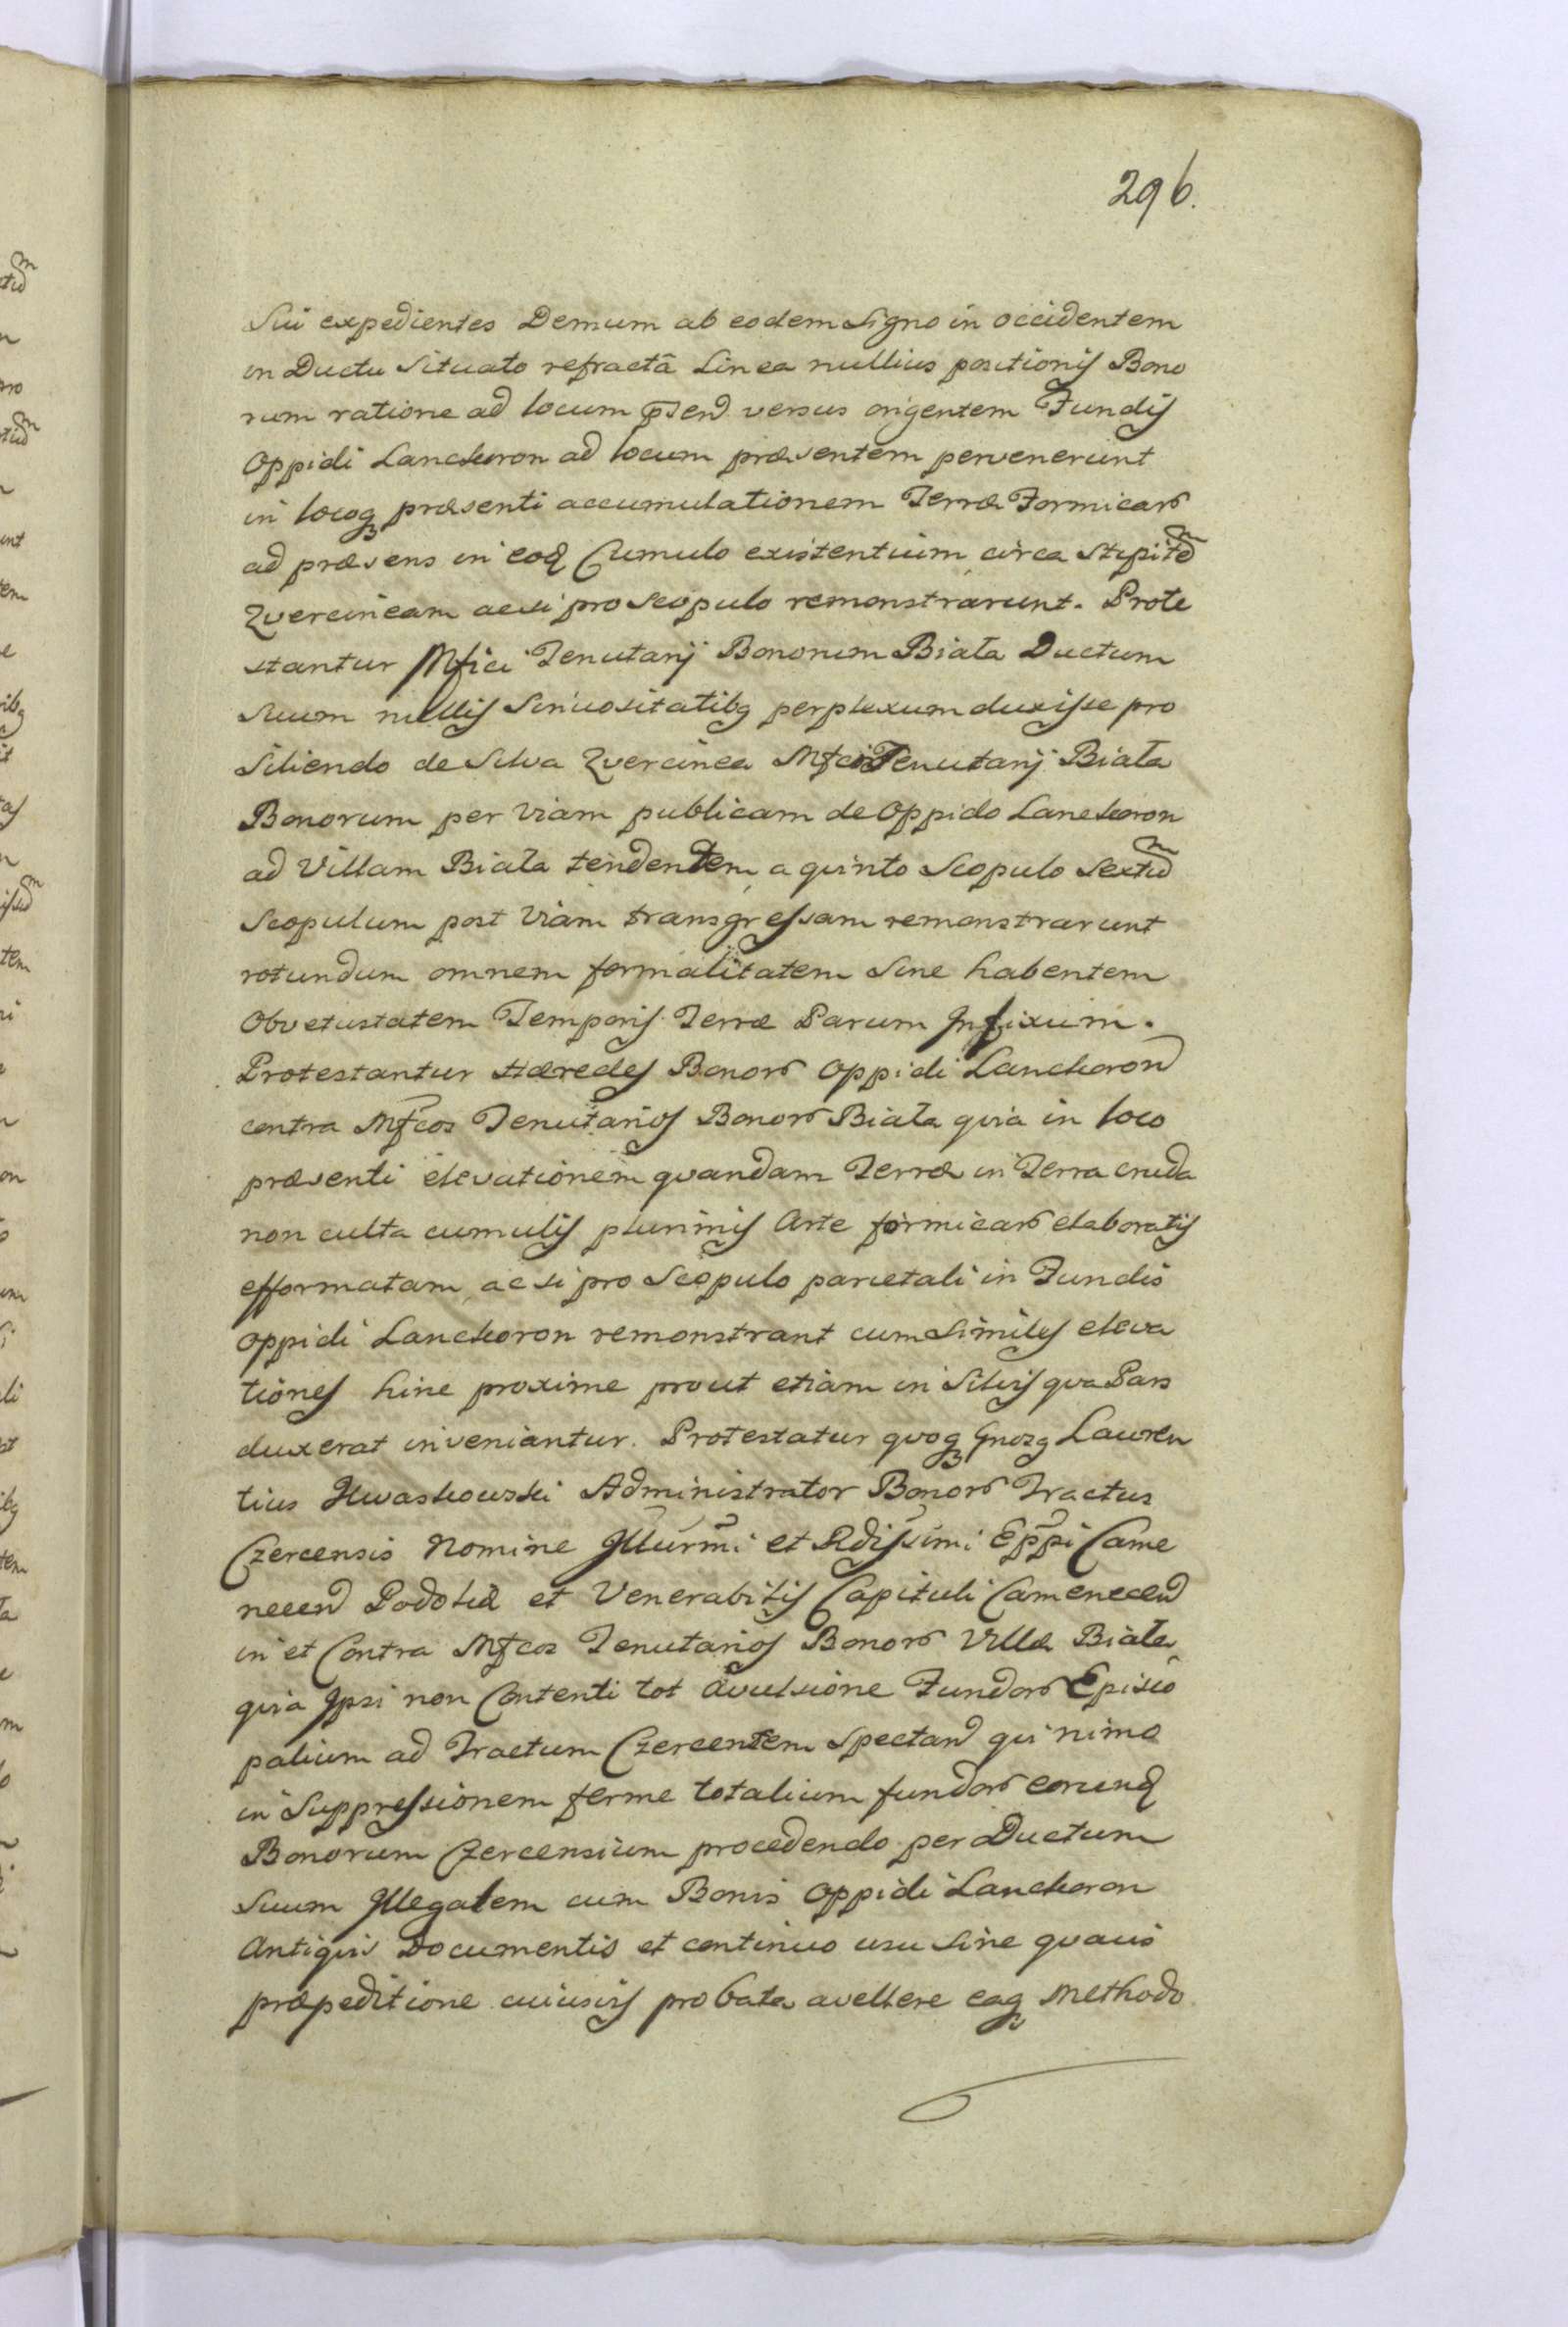 296.
Sui expedientes Demum ab eodem Signo in occidentem
in Ductu Situato refractâ Linea nullius positionis Bono
rum ratione ad locum versus origentem Fundis
Oppidi Lanckoron ad locum præsentem pervenerunt
in locoq præsenti accumulationem Terræ Formicar
ad præsens in eoq Cumulo existentium circa Stipite
Quercineam acsi pro Scopulo remonstrarunt. Prote
stantur Mfici Tenutarij Bonorum Biała Ductum
suum nullis Sinuositatibq perplexum duxisse pro
Siliendo de Silva Quercinea Mfci Tenutarij Biała
Bonorum per Viam publicam de Oppido Lanckoron
ad Villam Biała tendentem, a quinto Scopulo Sextu
Scopulum post Viam transgressam remonstrarunt
rotundum omnem formalitatem Sine habentem
Obvetustatem Temporis Terræ Parum Infixum.
Protestantur Hæredes Bonor Oppidi Lanckoron
contra Mfcos Tenutarios Bonor Biała quia in loco
præsenti elevationem quandam Terræ in Terra cruda
non culta cumulis plurimis Arte formicar elaboratis
efformatam, ac si pro Scopulo parietali in Fundis
Oppidi Lanckoron remonstrant cum Similes eleva
tiones hinc proxime prout etiam in Silvis qva Pars
duxerat inveniantur. Protestatur quoq Gnosq Lauren
tius Administrator Bonor Tractus
Czercensis Nomine Illurmi et Rdissimi Eppi Came
necen Podoliæ et Venerabilis Capituli Camenecen
in et Contra Mfcos Tenutarios Bonor Villæ Biała
quia Ipsi non Contenti tot avulsione Fundor Episco
palium ad Tractum Czercensem Spectan qui nimo
in Suppressionem ferme totalium fundor eorunq
Bonorum Czercensium procedendo per Ductum
Suum Illegalem cum Bonis Oppidi Lanckoron
Antiquis Documentis et continuo usu Sine quavis
præpeditione cuiusvis probata avellere eaq Methodo